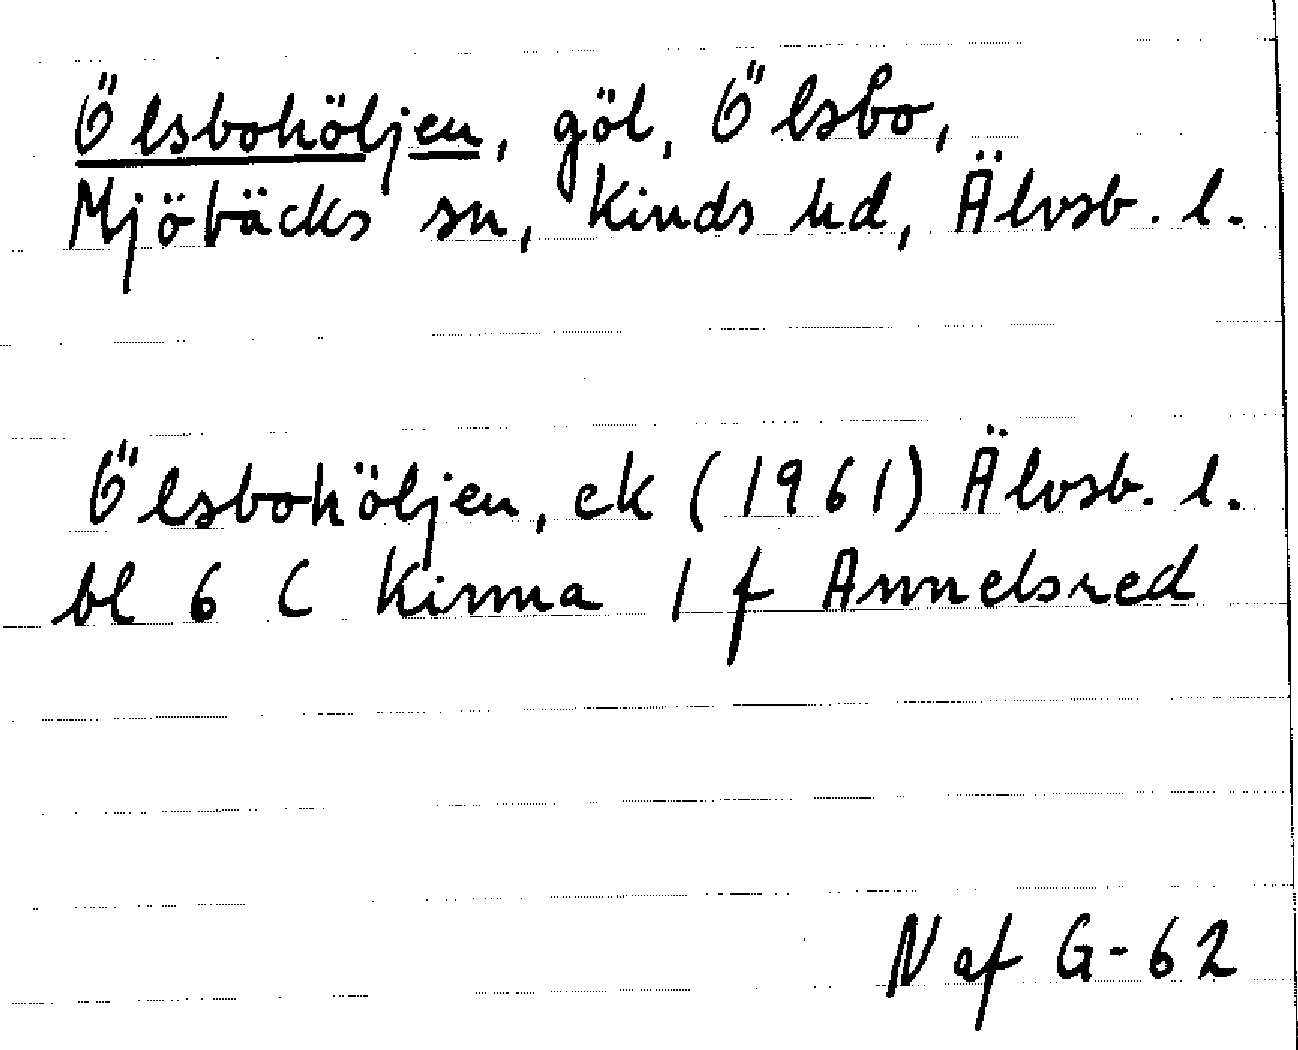 Ölsbohöljen, göl, Ölsbo,
Mjöbäcks sn, Kinds hd, Älvsb. l.
Ölsbohöljen, ek (1961) Älvsb. l.
bl 6 C Kinna 1 f Annelsred
N af G-62